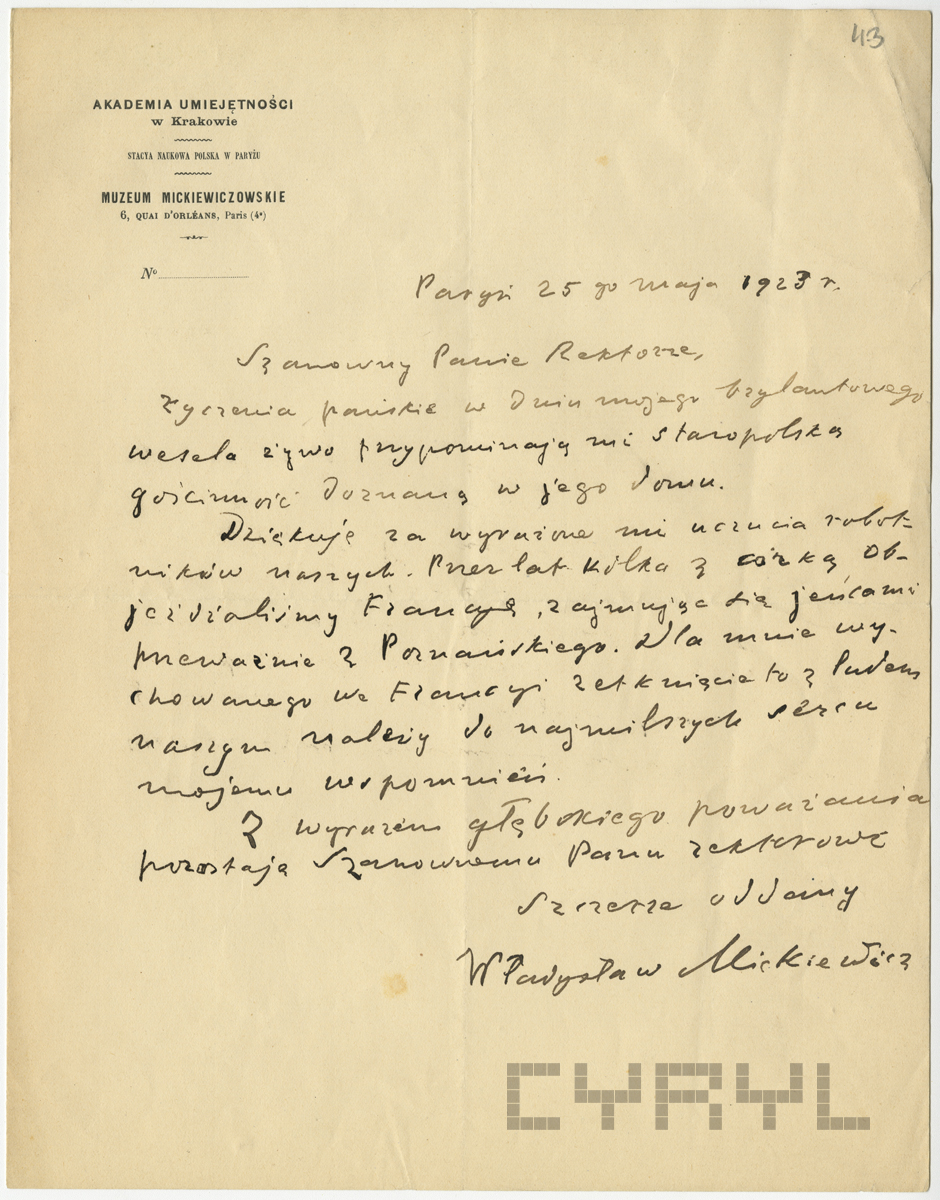 43
AKADEMIA UMIEJĘTNOŚCI
w Krakowie
STACYA NAUKOWA POLSKA W PARYŻU
MUZEUM MICKIEWICZOWSKIE
6, QUAI D'ORLÉANS, Paris (4e)
No
Paryż 25 go maja 1923 r.
Szanowny Panie Rektorze,
Życzenia pańskie w dniu mojego brylantowego
wesela żywo przypominają mi staropolską
gościnność doznaną w jego domu.
Dziękuję za wyrażone mi uczucia robot-
ników naszych. Przez lat kilka z córką ob-
jeżdżaliśmy Francyę, zajmując się jeńcami
przeważnie z Poznańskiego. Dla mnie wy-
chowanego we Francyi zetknięcie to z ludem
naszym należy do najmilszych sercu
mojemu wspomnień.
Z wyrazem głębokiego poważania
pozostaję Szanownemu Panu rektorowi
Szczerze oddany
Władysław Mickiewicz
CYRYL